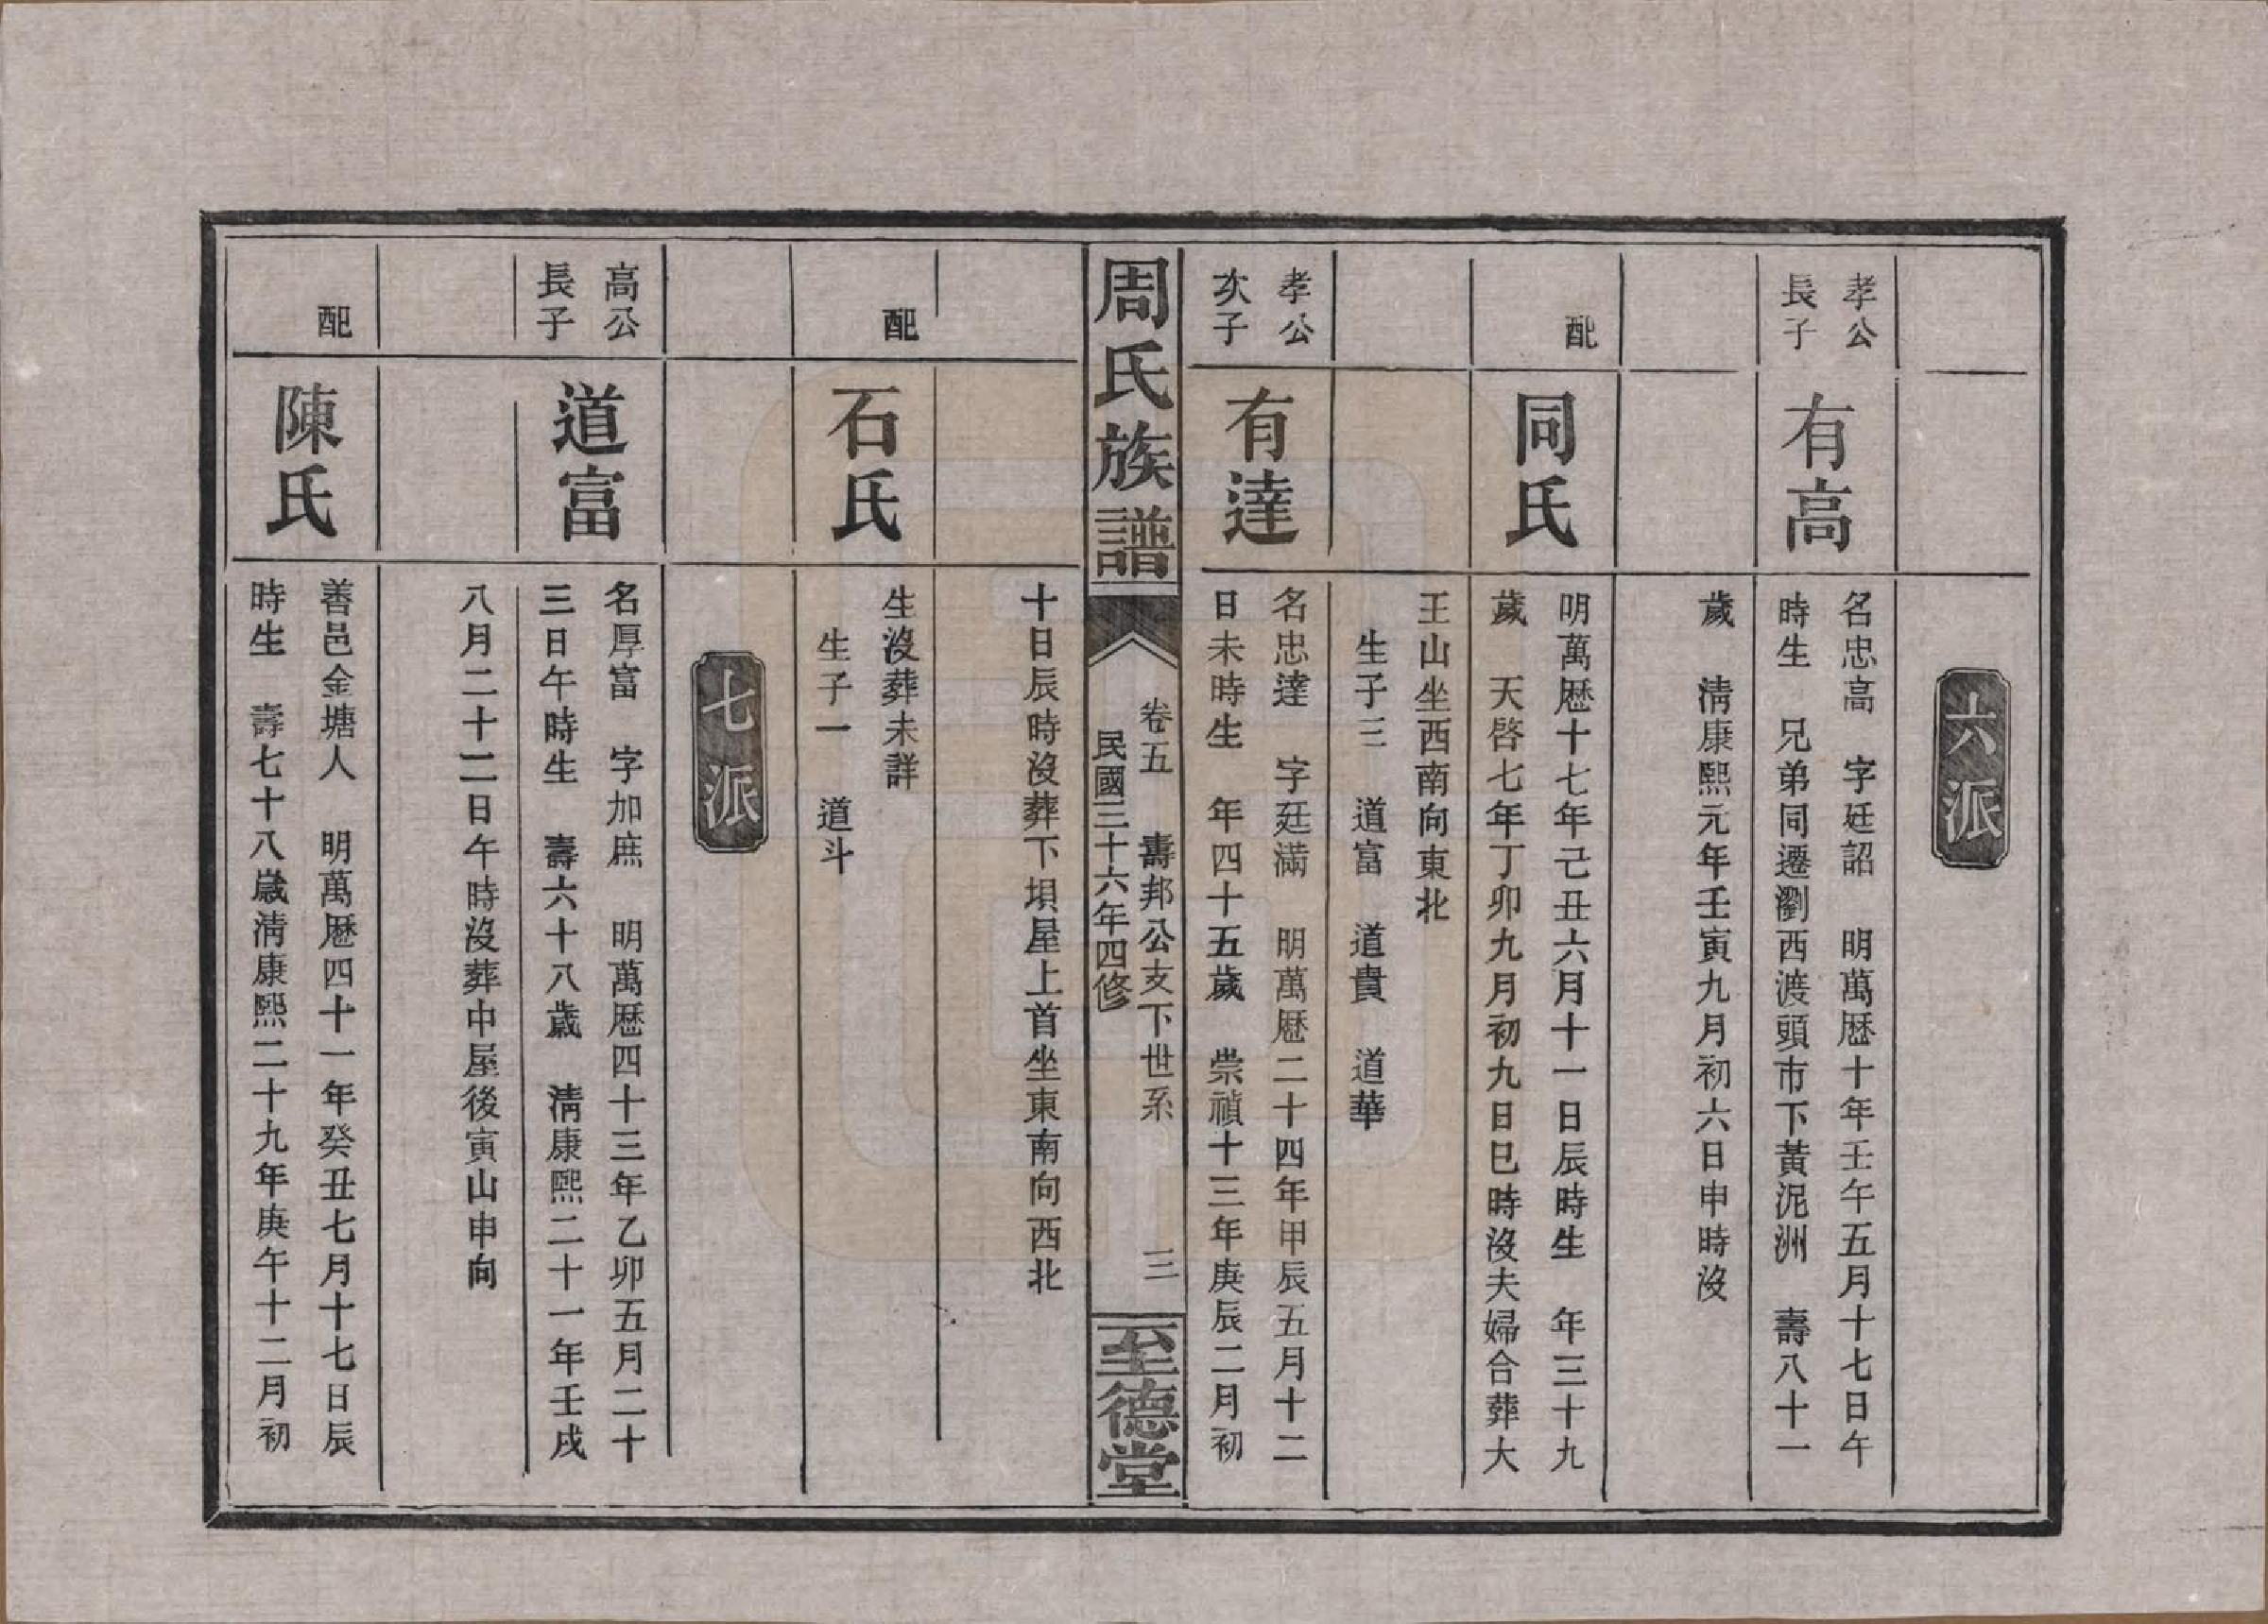 六派
孝公
長子
有高
名忠高　字廷詔　明萬厯十年壬午五月十七日午
時生　兄弟同遷瀏西渡頭市下黃泥洲　壽八十一
歲　淸康熙元年壬寅九月初六日申時沒
配
同氏
明萬厯十七年己丑六月十一日辰時生　年三十九
歲　天啓七年丁卯九月初九日巳時沒夫婦合葬大
王山坐西南向東北
生子三　道富　道貴　道華
孝公
次子
有達
名忠達　字廷滿　明萬厯二十四年甲辰五月十二
日未時生　年四十五歲　崇禎十三年庚辰二月初
周氏族譜
卷五　壽邦公支下世系　三
民國三十六年四修
至德堂
十日辰時沒葬下垻屋上首坐東南向西北
配
石氏
生沒葬未詳
生子一　道斗
七派
高公
長子
道富
名厚富　字加庶　明萬厯四十三年乙卯五月二十
三日午時生　壽六十八歲　淸康熙二十一年壬戌
八月二十二日午時沒葬中屋後寅山申向
配
陳氏
善邑金塘人　明萬厯四十一年癸丑七月十七日辰
時生　壽七十八歲淸康熙二十九年庚午十二月初